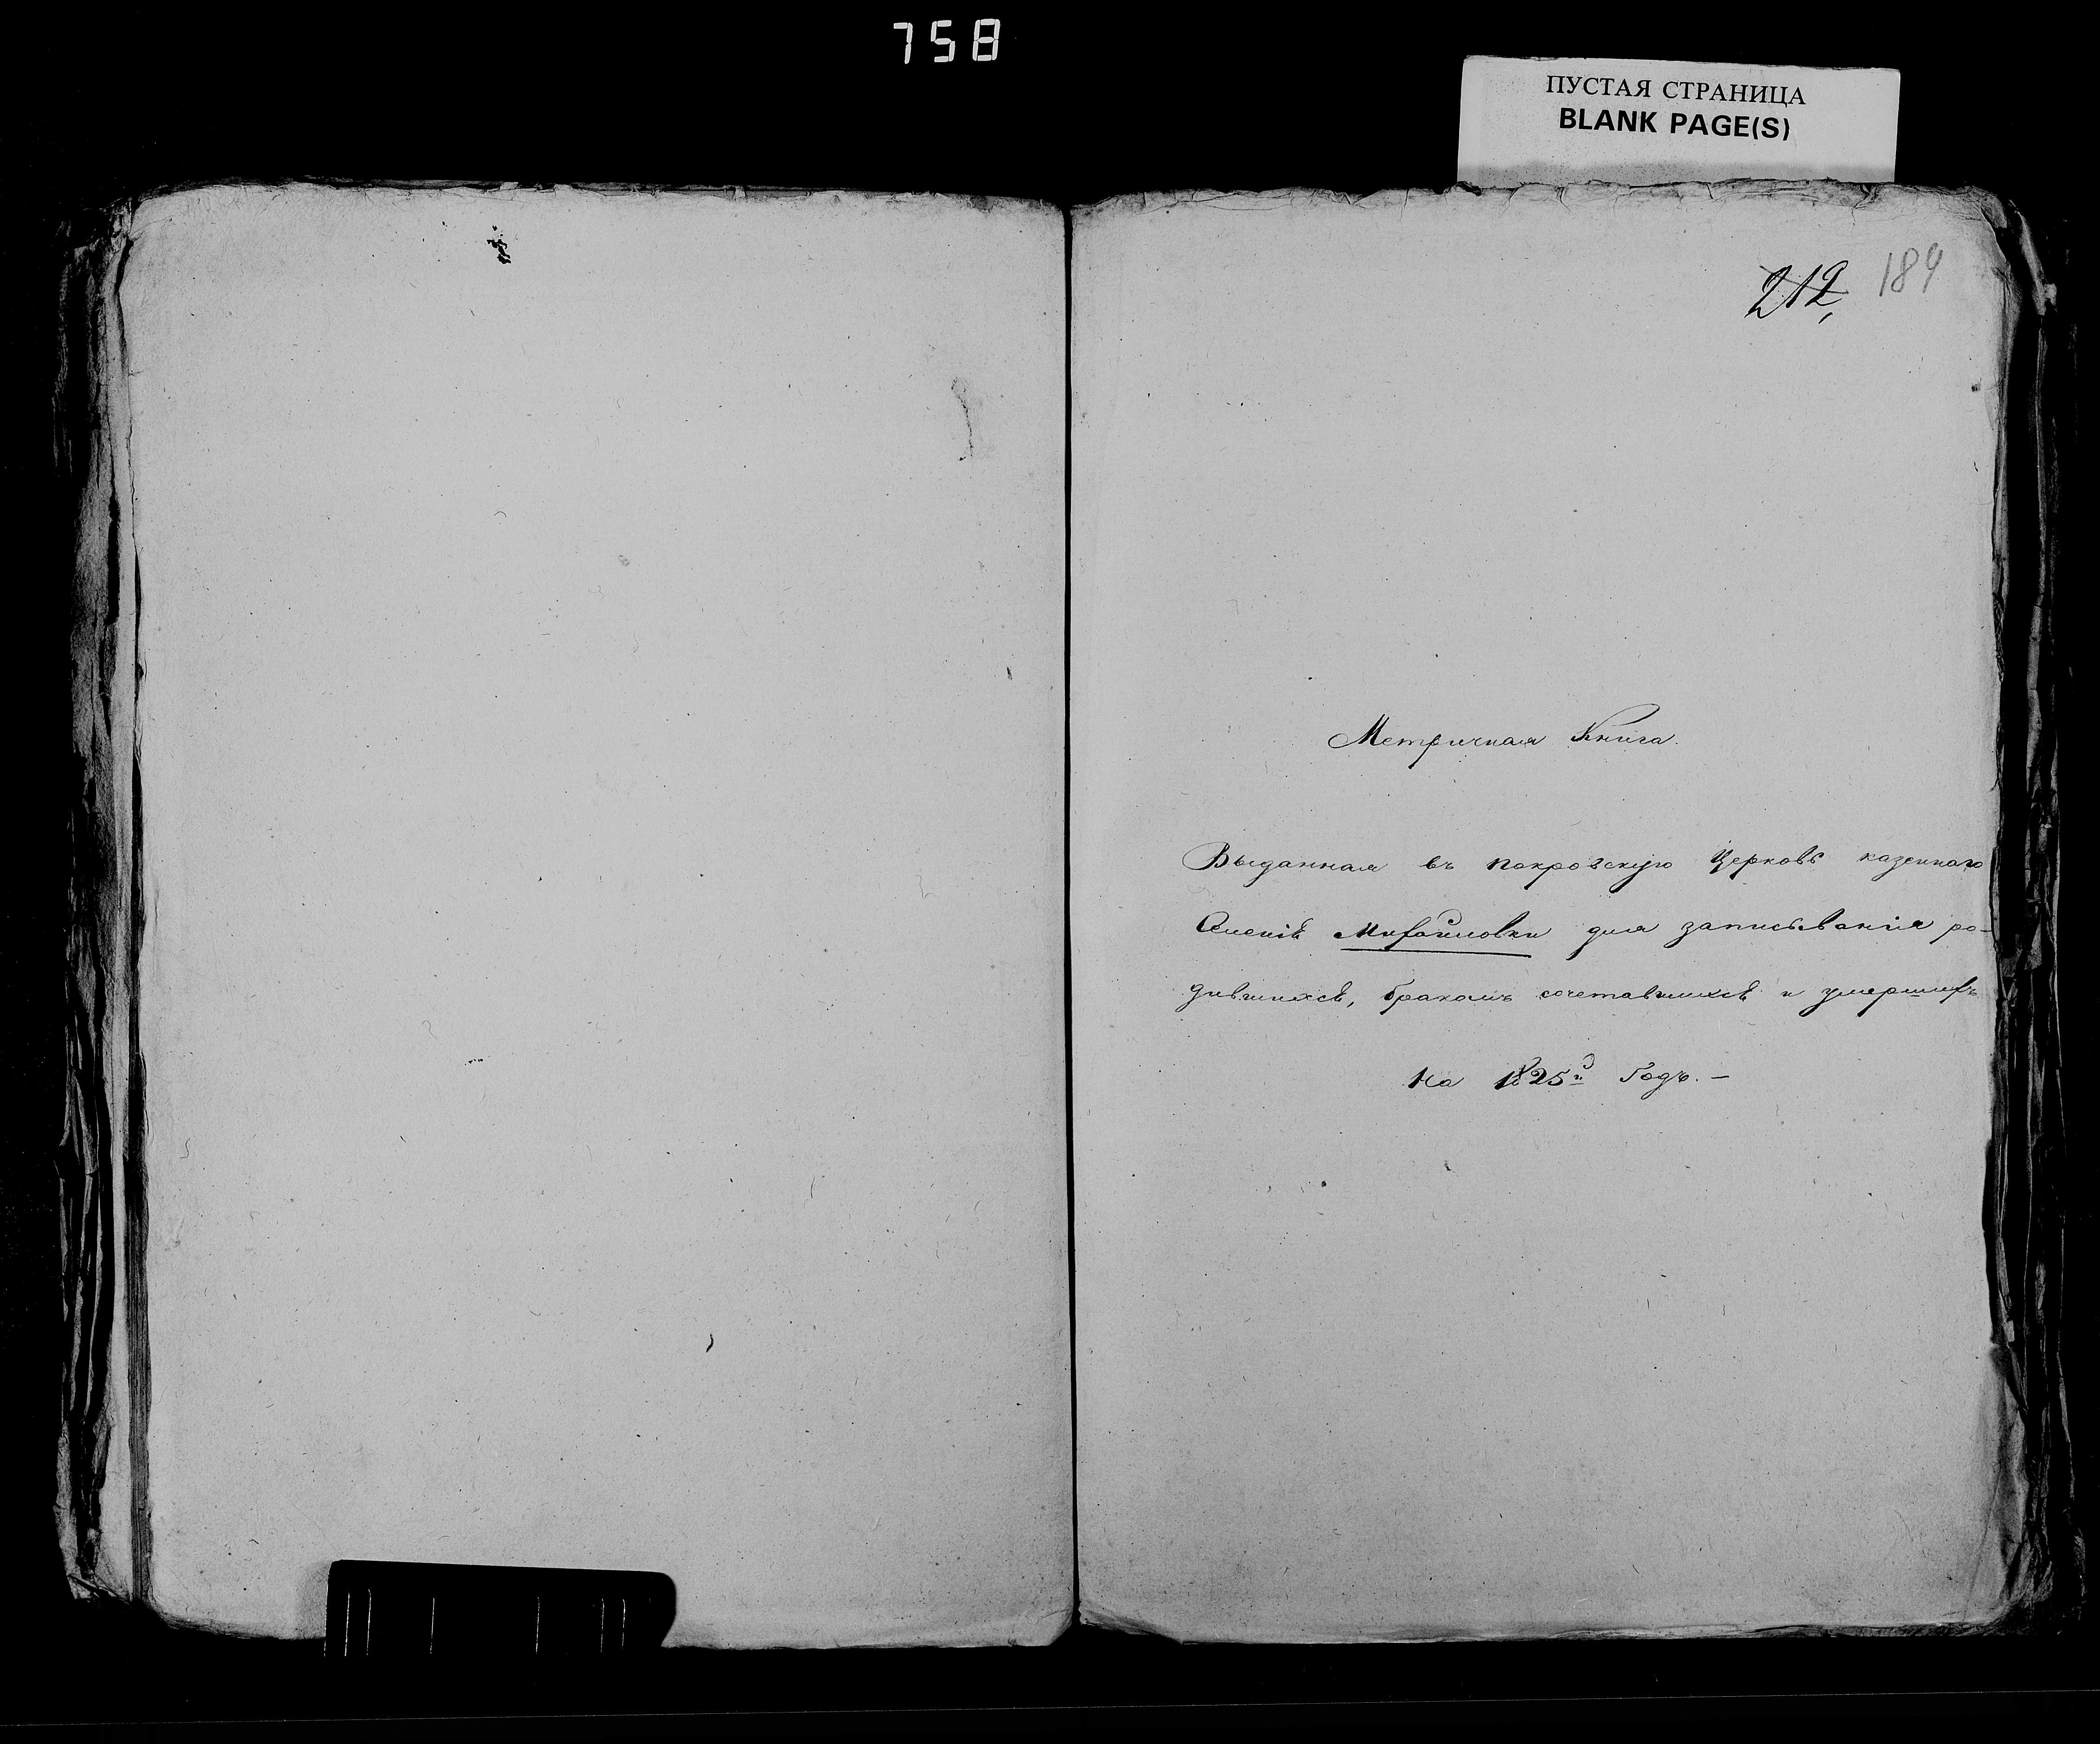 758
ПУСТАЯ СТРАНИЦА
BLANK PAGE(S)
212, 189
Метричная Книга.
Выданная въ покровскую Церковь казеннаго
Селенія Михайловки для записыванія ро-
дившихся, бракомъ сочетавшихся и умершихъ
На 1825й Годъ. —